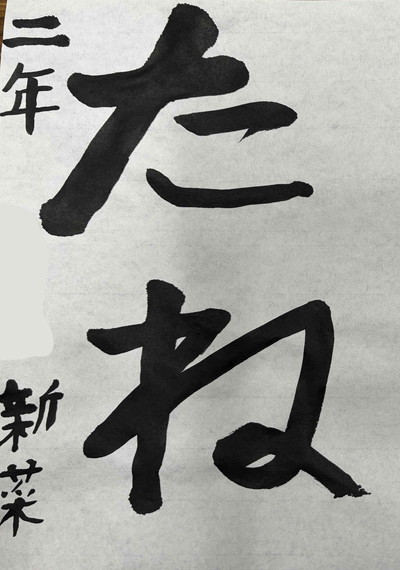 たね
二年
新菜